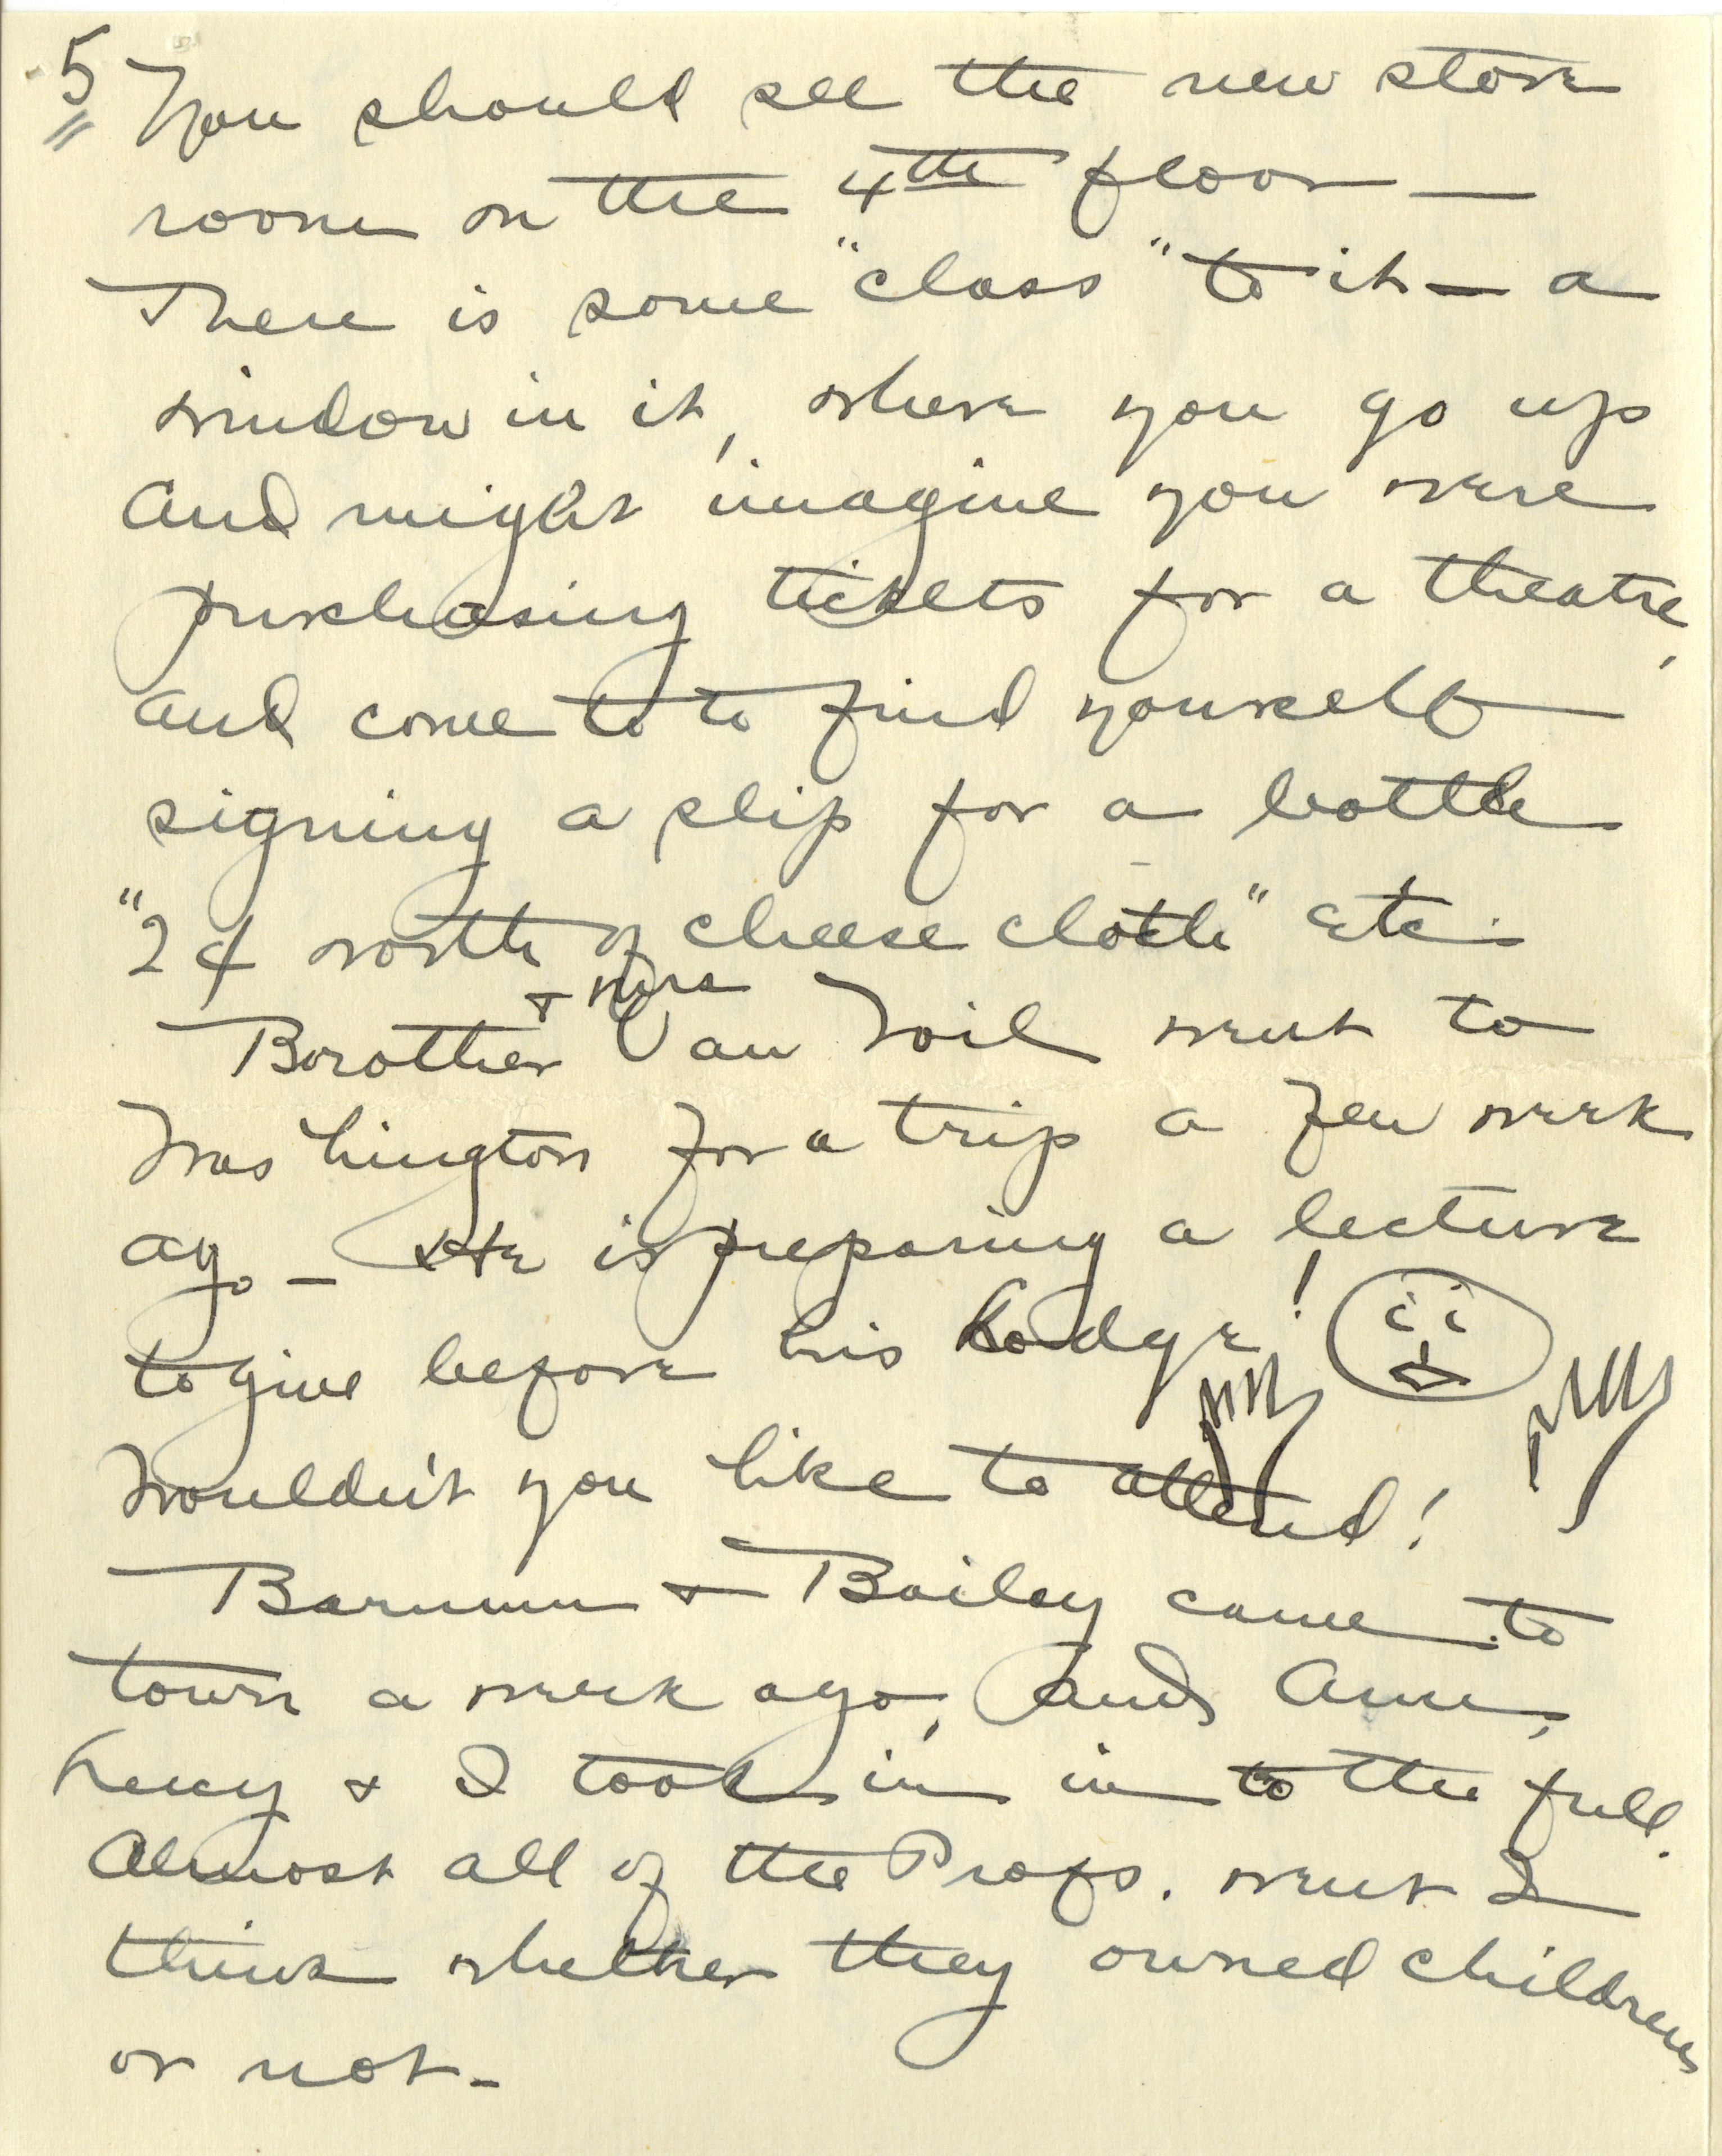 5 You should see the new store
room on the 4th floor —
There is some "class" to it — a
window in it, where you go up
and might imagine you were
purchasing tickets for a theatre,
and come to to find yourself
signing a slip for a bottle
"2¢ worth of cheese cloth" etc.
+ Mrs
Brother Van Wil went to
Washington for a trip a few week
ago — He is preparing a lecture
to give before his Lodge!
Wouldn't you like to attend!
Barnum + Bailey came to
town a week ago, and Anne,
Lucy + I took in in to the full.
Almost all of the Profs. went I
think whether they owned children
or not —